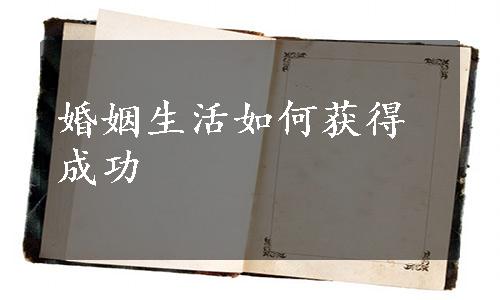 婚姻生活如何获得
成功